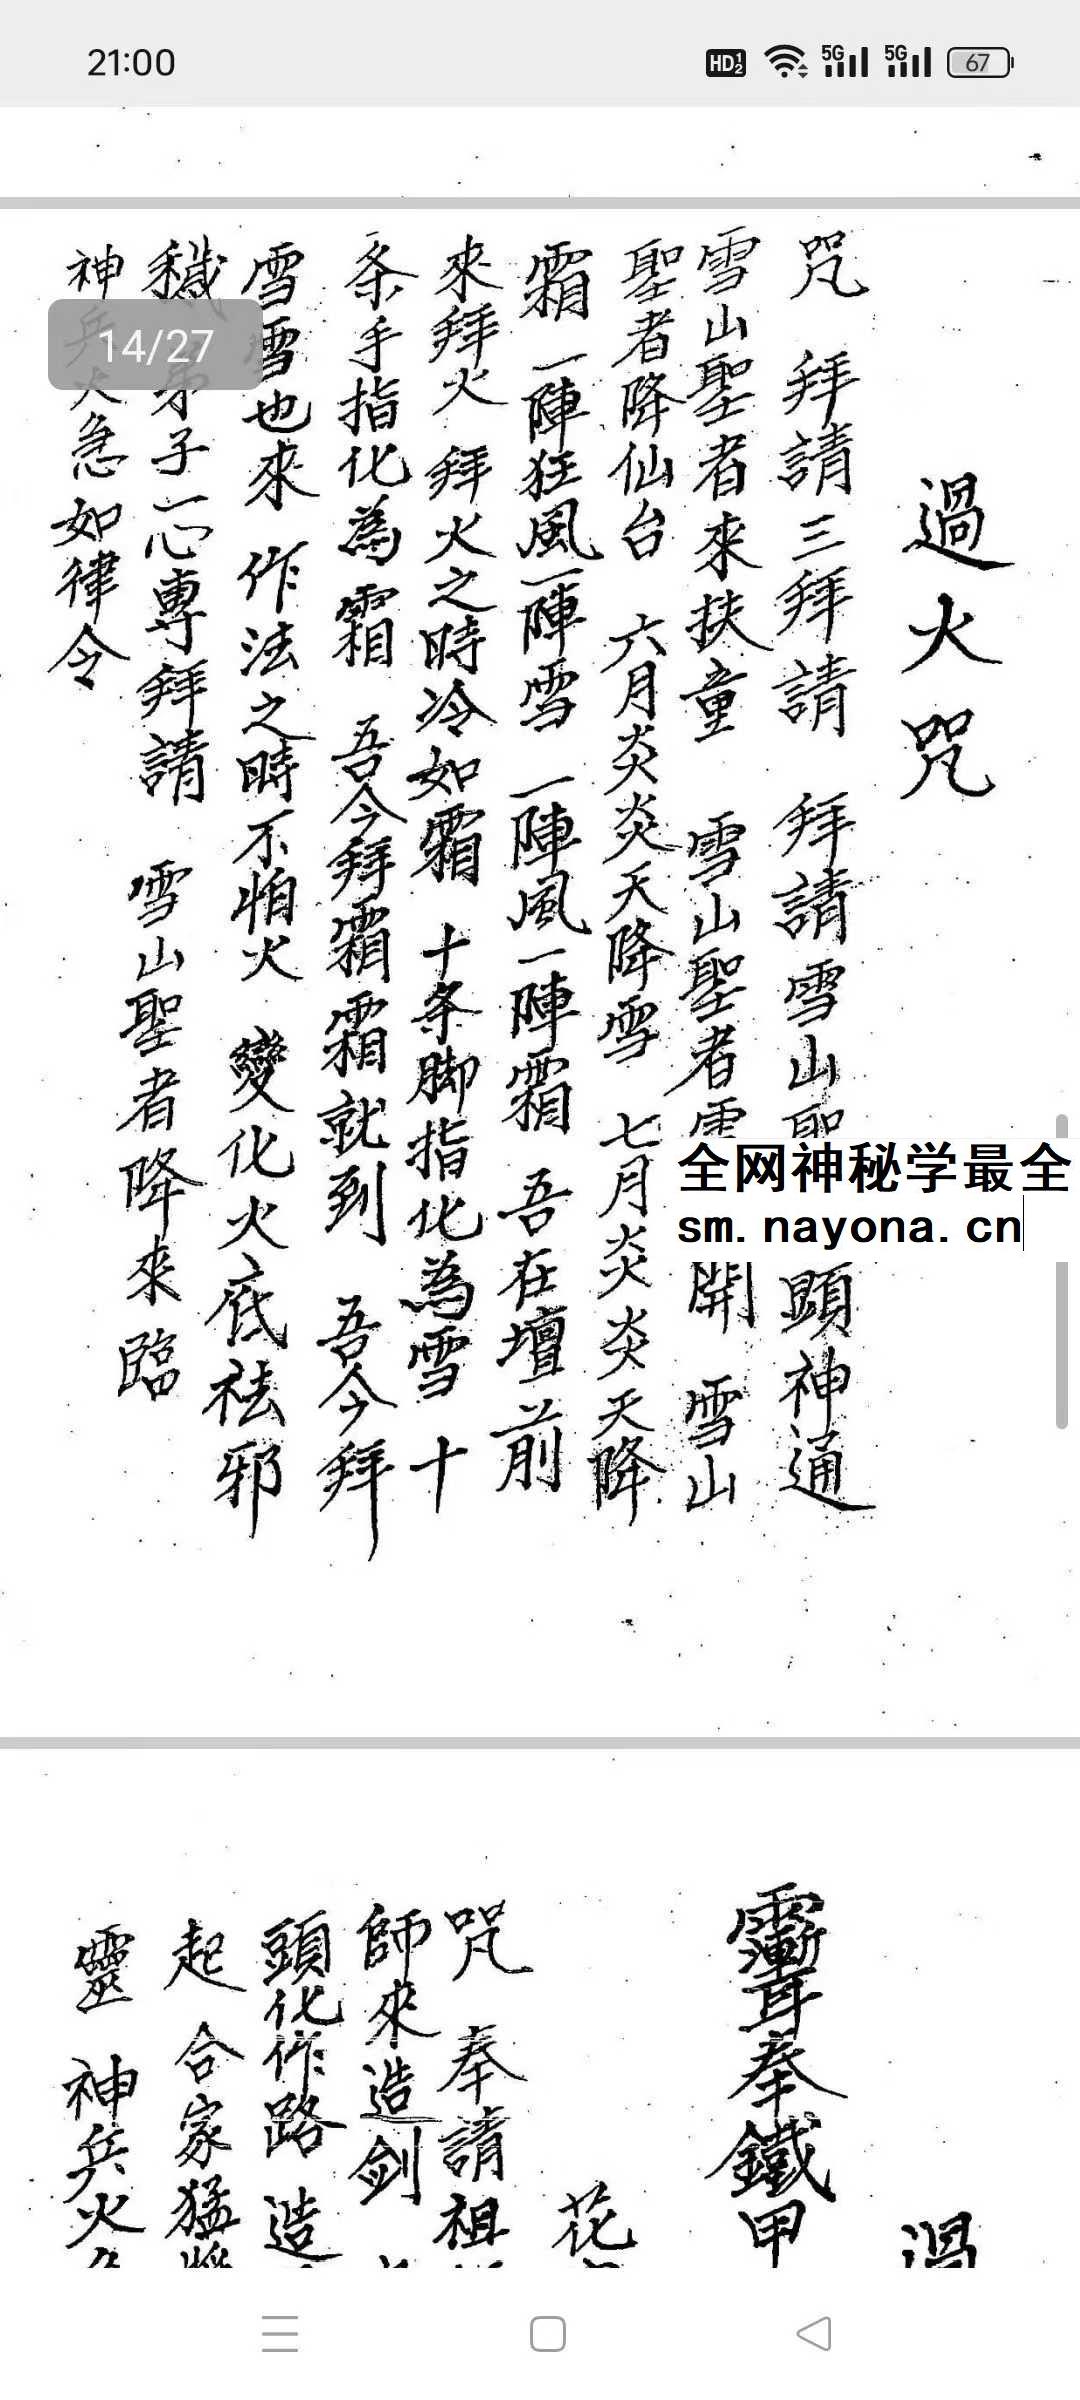 21:00
HD 1 2 5G 5G 67
14/27
過火咒
咒 拜請三拜請 拜請雪山聖 顕神通
雪山聖者來扶童 雪山聖者雲 開 雪山
聖者降仙台 六月炎炎天降雪 七月炎炎天降
霜 一陣狂風一陣雪 一陣風一陣霜 吾在壇前
來拜火 拜火之時冷如霜 十条脚指化為雪 十
条手指化為霜 吾今拜霜霜就到 吾今拜
雪雪也來 作法之時不怕火 變化火底祛邪
穢 弟子一心專拜請 雪山聖者降來臨
神兵火急如律令
全网神秘学最全
sm.nayona.cn
過
奉鐵甲
花
咒 奉請祖
師來造剑
頭化作路 造
起 合家猛將
靈 神兵火急